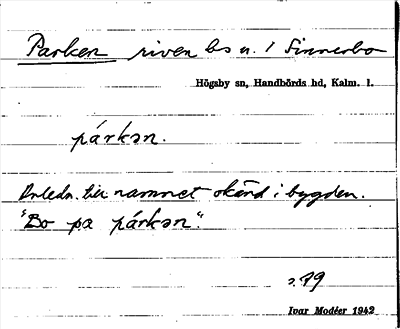 Parken riven bs u. / Sinnerbo
Högsby sn, Handbörds hd, Kalm. l.
párkən.
Anledn. till namnet okänd i bygden.
"Bo pa párkən".
s. 99
Ivar Modéer 1942